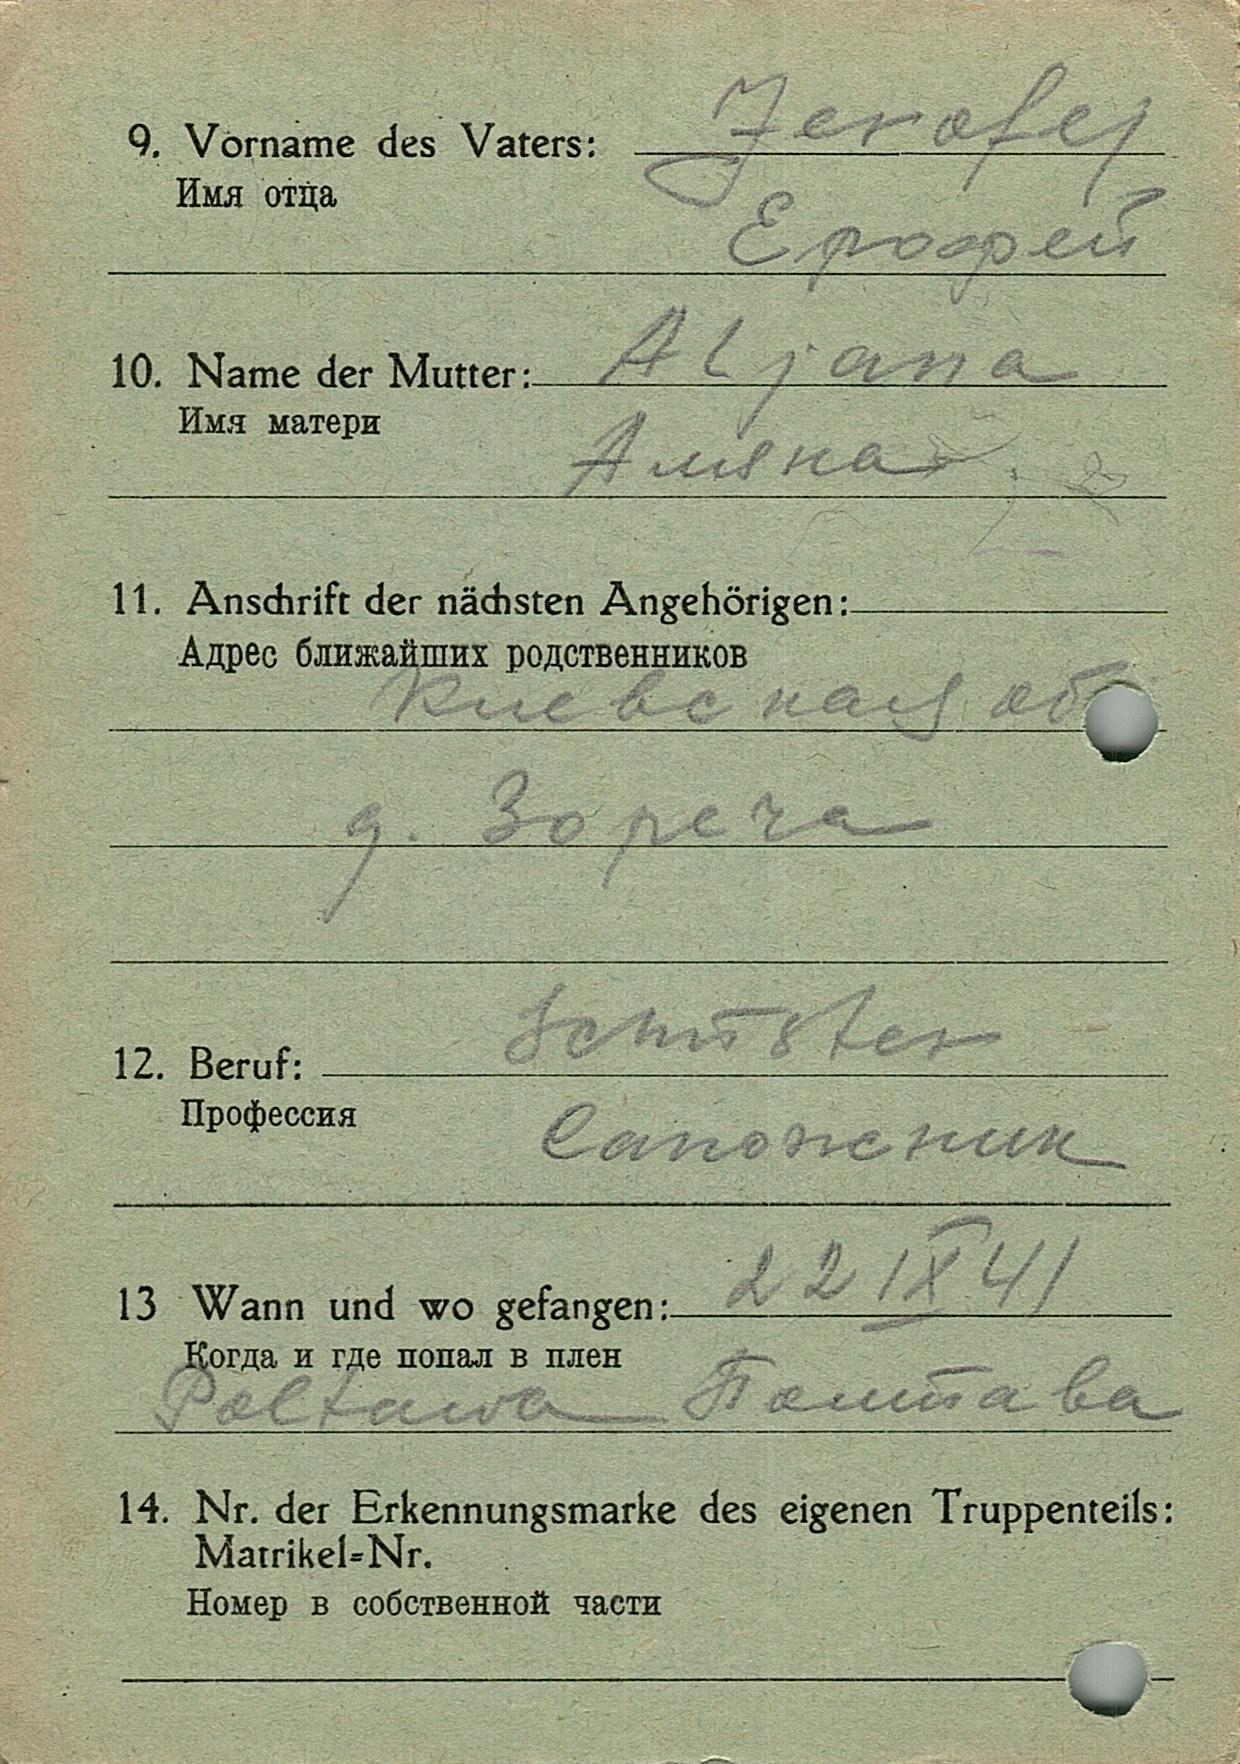 9. Vorname des Vaters: Jerofej
Имя отца
Ерофей
10. Name der Mutter: Aljana
Имя матери
Аляна
11. Anschrift der nächsten Angehörigen:
Адрес ближайших родственников
Киевская об
д. Зореча
12. Beruf: Schuster
Профессия
Сапожник
13 Wann und wo gefangen: 22 IX 41
Когда и где попал в плен
Poltawa Полтава
14. Nr. der Erkennungsmarke des eigenen Truppenteils:
Matrikel=Nr.
Номер в собственной части